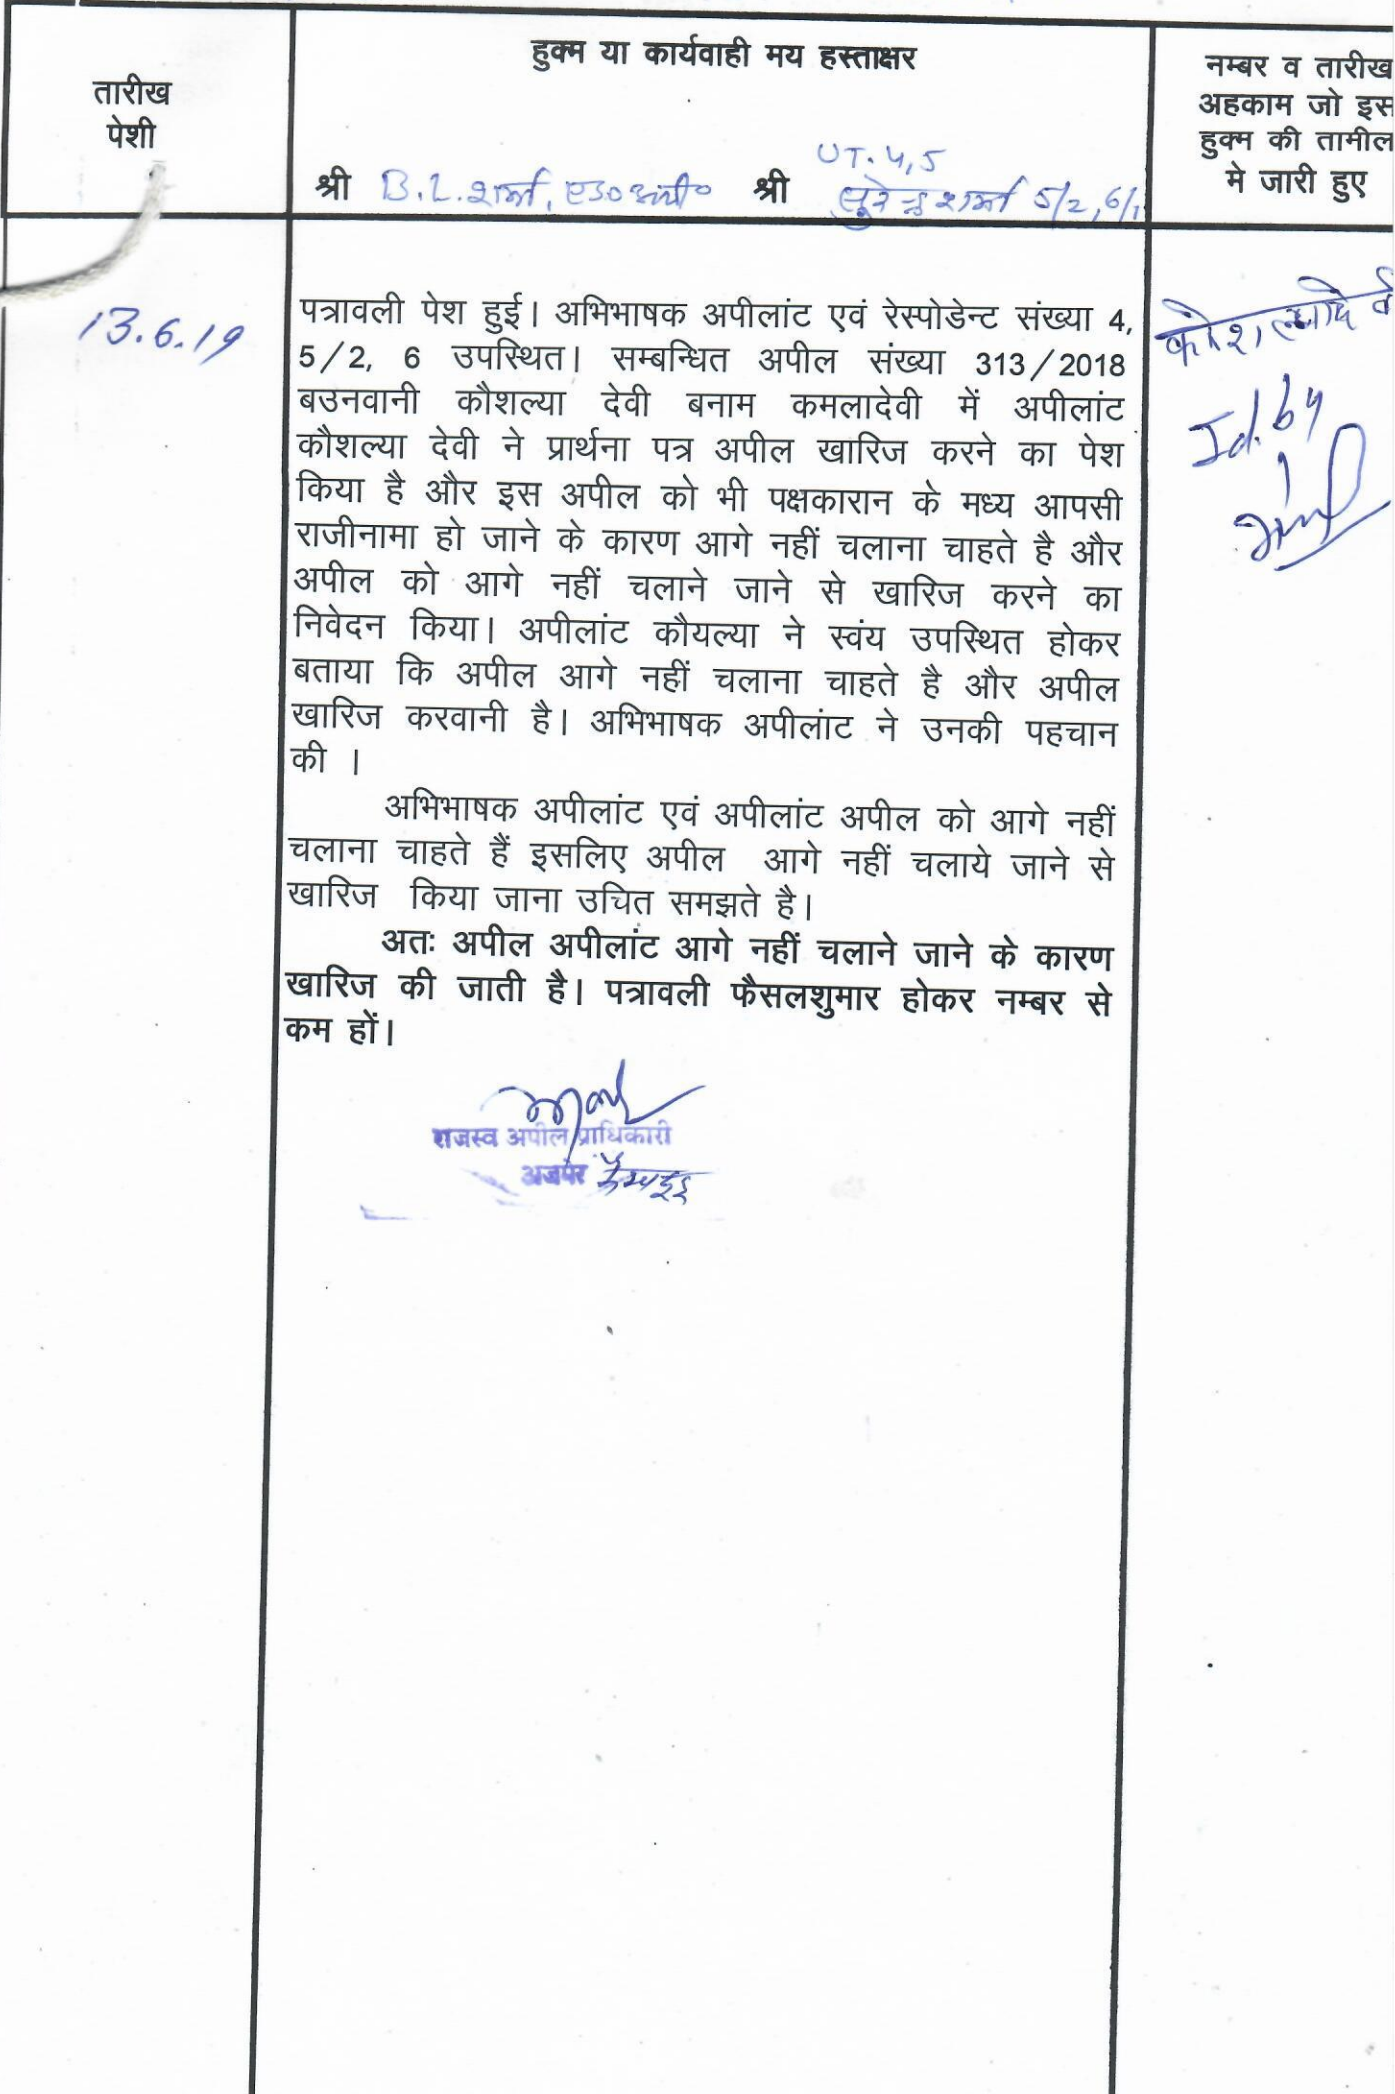 तारीख
पेशी
हुक्म या कार्यवाही मय हस्ताक्षर
नम्बर व तारीख
अहकाम जो इस
हुक्म की तामील
मे जारी हुए
UT. 4,5
श्री B.L. शर्मा, श्री सुरेन्द्र शर्मा 5/2, 6/1
13.6.19
पत्रावली पेश हुई। अभिभाषक अपीलांट एवं रेस्पोडेन्ट संख्या 4,
5/2, 6 उपस्थित। सम्बन्धित अपील संख्या 313/2018
बउनवानी कौशल्या देवी बनाम कमलादेवी में अपीलांट
कौशल्या देवी ने प्रार्थना पत्र अपील खारिज करने का पेश
किया है और इस अपील को भी पक्षकारान के मध्य आपसी
राजीनामा हो जाने के कारण आगे नहीं चलाना चाहते है और
अपील को आगे नहीं चलाने जाने से खारिज करने का
निवेदन किया। अपीलांट कौयल्या ने स्वंय उपस्थित होकर
बताया कि अपील आगे नहीं चलाना चाहते है और अपील
खारिज करवानी है। अभिभाषक अपीलांट ने उनकी पहचान
की ।
अभिभाषक अपीलांट एवं अपीलांट अपील को आगे नहीं
चलाना चाहते हैं इसलिए अपील आगे नहीं चलाये जाने से
खारिज किया जाना उचित समझते है।
अतः अपील अपीलांट आगे नहीं चलाने जाने के कारण
खारिज की जाती है। पत्रावली फैसलशुमार होकर नम्बर से
कम हों।
Id. by
राजस्व अपील प्राधिकारी
अजमेर